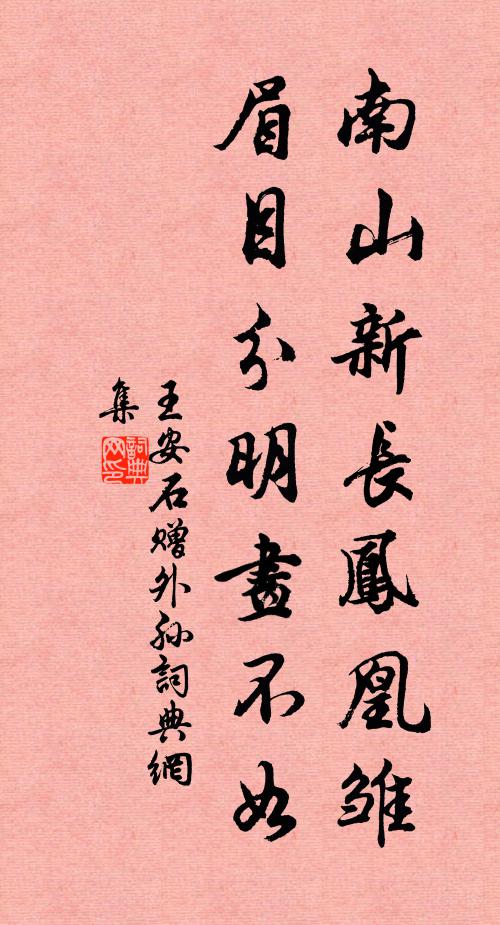 南山新長鳳凰雛
眉目分明畫不如
王安石贈外孫詞典網
集
詞典
网印